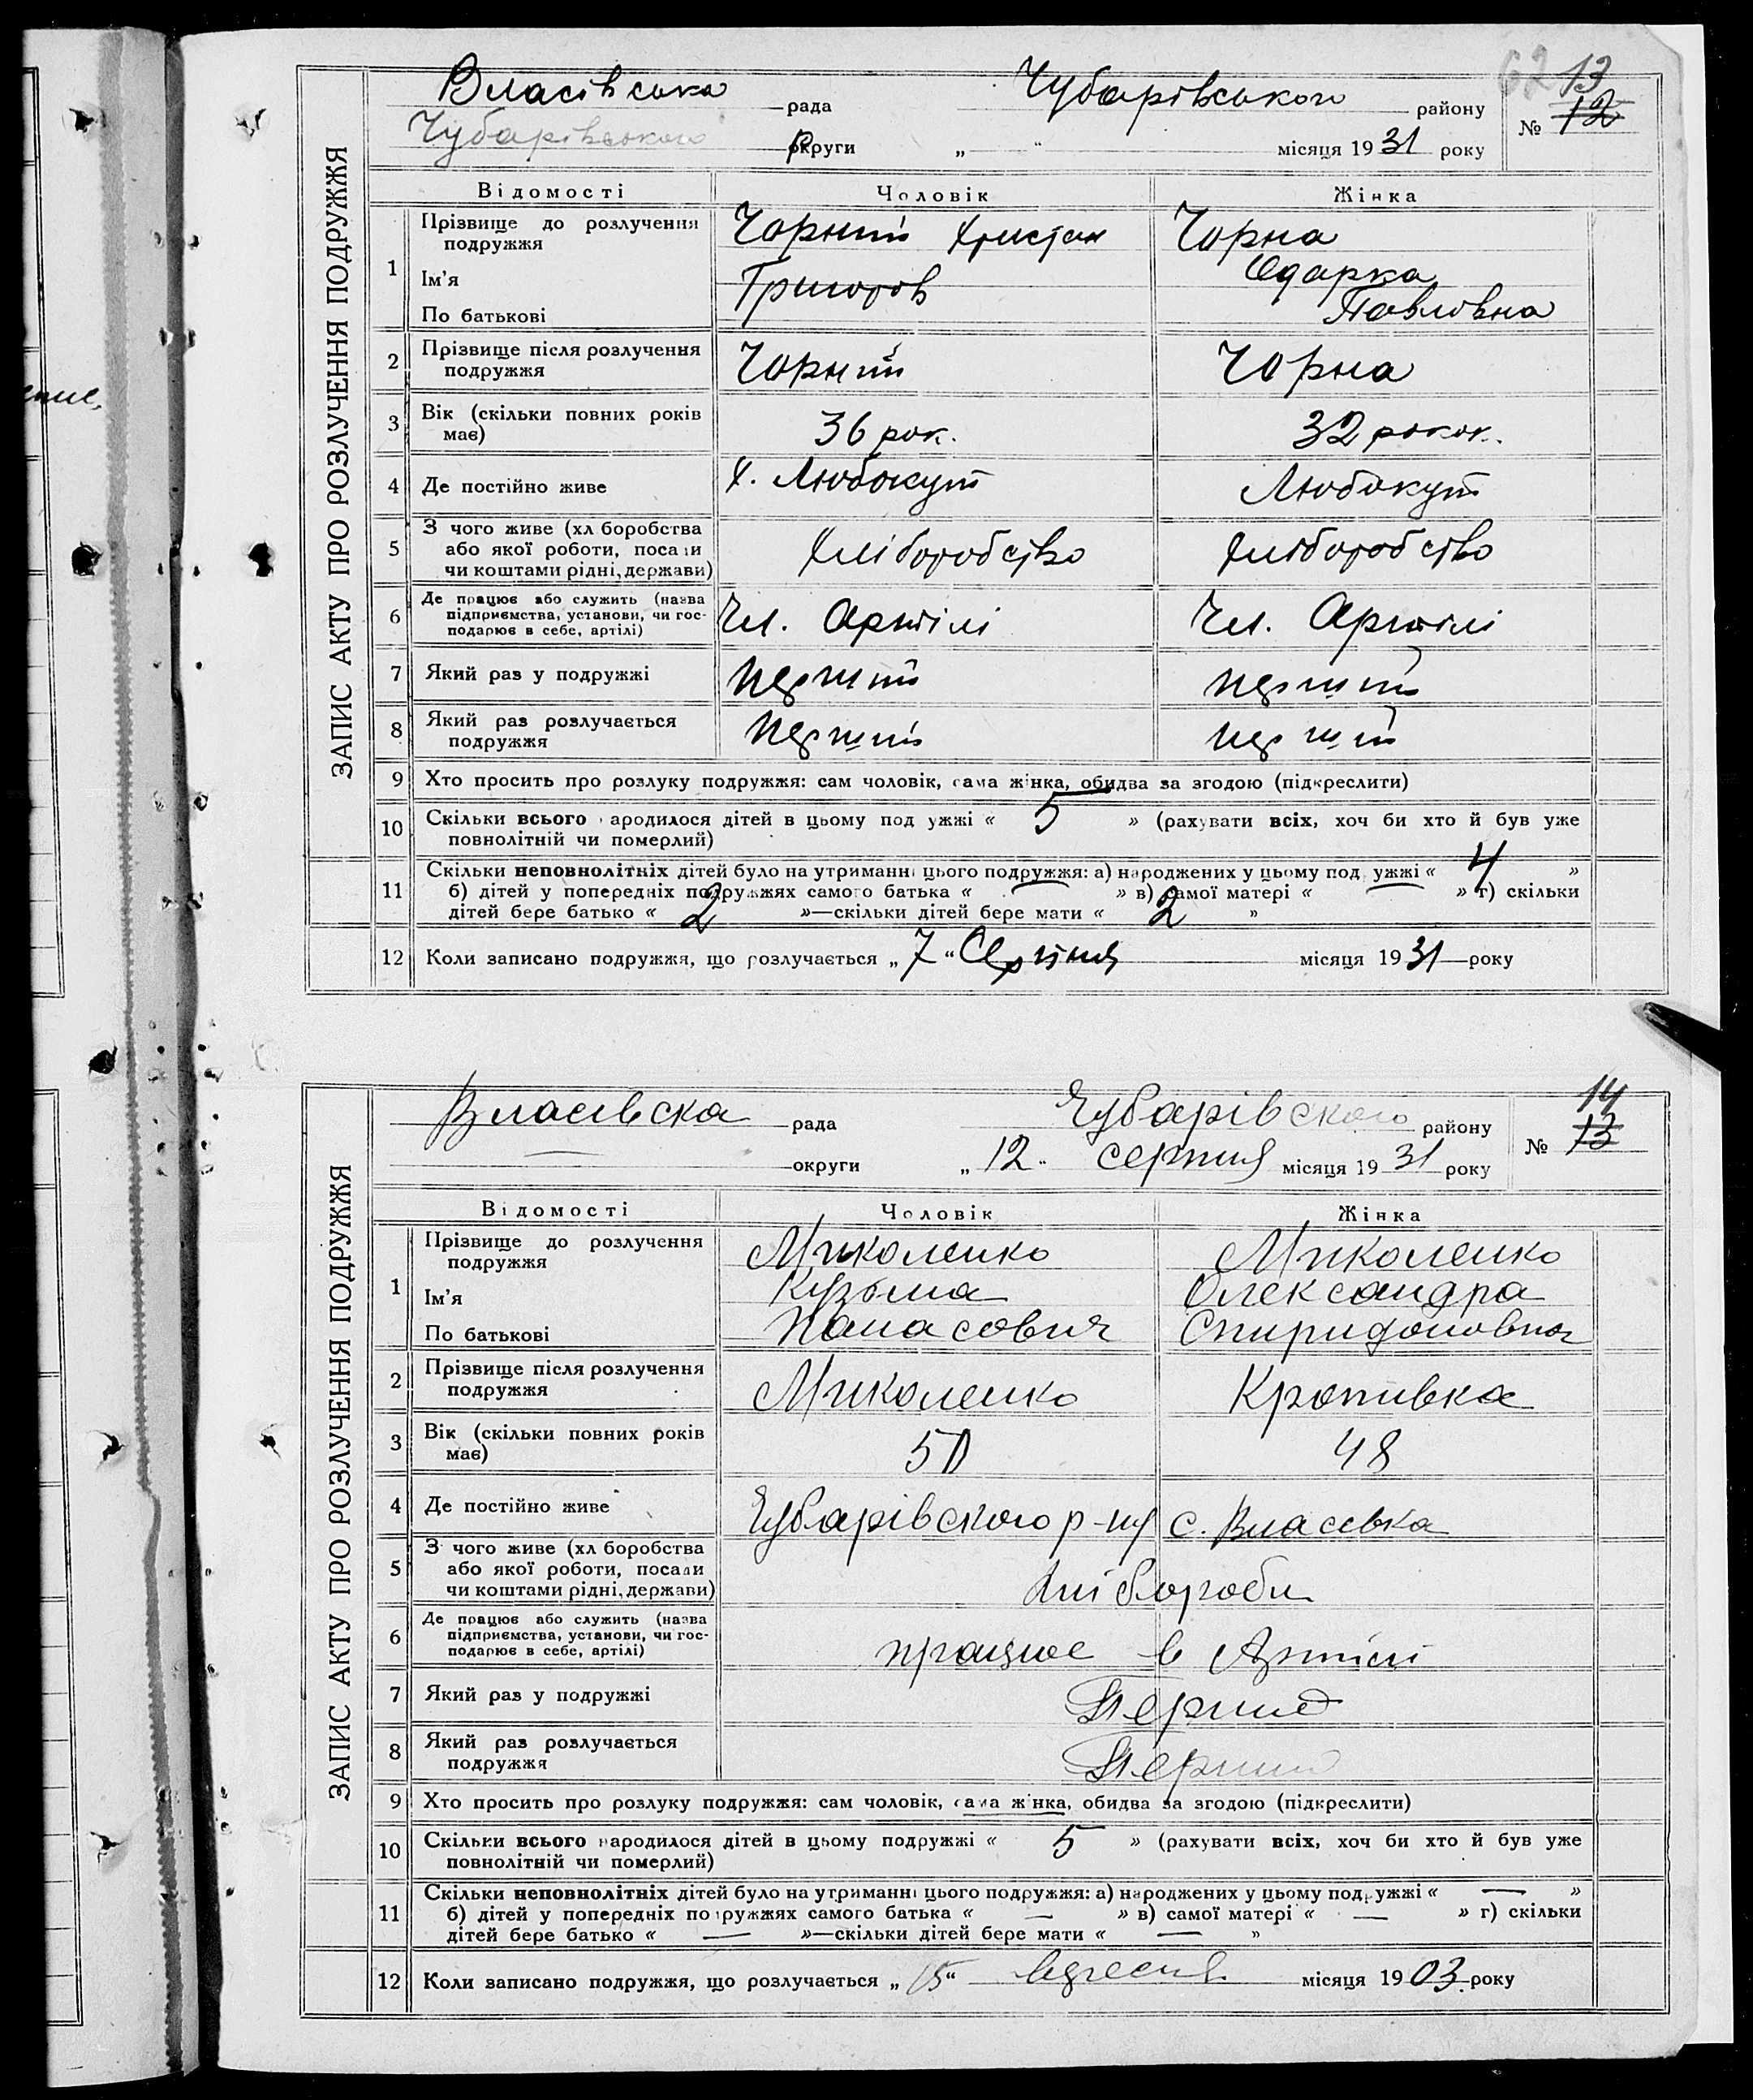 62 13
Власівська рада Чубарівського району № 12
Чубарівського округи „ “ місяця 1931 року
ЗАПИС АКТУ ПРО РОЗЛУЧЕННЯ ПОДРУЖЖЯ
Відомості Чоловік Жінка
1 Прізвище до розлучення подружжя Чорний Христан Чорна
Ім'я Григоров Одарка
По батькові Павловна
2 Прізвище після розлучення подружжя Чорний Чорна
3 Вік (скільки повних років має) 36 рок. 32 рокок.
4 Де постійно живе х. Любокут Любокут
5 З чого живе (хл боробства
або якої роботи, посади Хліборобство Хліборобство
чи коштами рідні, держави)
6 Де працює або служить (назва
підприємства, установи, чи гос- Чл. Артілі Чл. Артілі
подарює в себе, артілі)
7 Який раз у подружжі перший перший
8 Який раз розлучається подружжя перший перший
9 Хто просить про розлуку подружжя: сам чоловік, сама жінка, обидва за згодою (підкреслити)
10 Скільки всього народилося дітей в цьому подружжі « 5 » (рахувати всіх, хоч би хто й був уже
повнолітній чи померлий)
11 Скільки неповнолітніх дітей було на утриманні цього подружжя: а) народжених у цьому подружжі « 4 »
б) дітей у попередніх подружжях самого батька « — » в) самої матері « — » г) скільки
дітей бере батько « 2 »—скільки дітей бере мати « 2 »
12 Коли записано подружжя, що розлучається „ 7 “ Серпня місяця 1931 року
14
Власівска рада Чубарівского району № 13
— округи „ 12 “ серпня місяця 1931 року
ЗАПИС АКТУ ПРО РОЗЛУЧЕННЯ ПОДРУЖЖЯ
Відомості Чоловік Жінка
1 Прізвище до розлучення подружжя Миколенко Миколенко
Ім'я Кузьма Олександра
По батькові Панасович Спиридоновна
2 Прізвище після розлучення подружжя Миколенко Кропивка
3 Вік (скільки повних років має) 50 48
4 Де постійно живе Чубарівского р-ну с. Власівка
5 З чого живе (хл боробства
або якої роботи, посади Хлібороби
чи коштами рідні, держави)
6 Де працює або служить (назва
підприємства, установи, чи гос- працює в Артілі
подарює в себе, артілі)
7 Який раз у подружжі Перший
8 Який раз розлучається подружжя Перший
9 Хто просить про розлуку подружжя: сам чоловік, сама жінка, обидва за згодою (підкреслити)
10 Скільки всього народилося дітей в цьому подружжі « 5 » (рахувати всіх, хоч би хто й був уже
повнолітній чи померлий)
11 Скільки неповнолітніх дітей було на утриманні цього подружжя: а) народжених у цьому подружжі « — »
б) дітей у попередніх подружжях самого батька « — » в) самої матері « — » г) скільки
дітей бере батько « — »—скільки дітей бере мати « — »
12 Коли записано подружжя, що розлучається „ 15 “ вересня місяця 1903 року